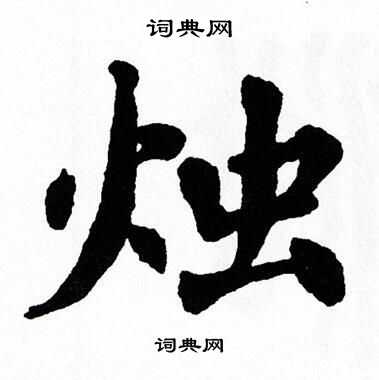 词典网
烛
词典网